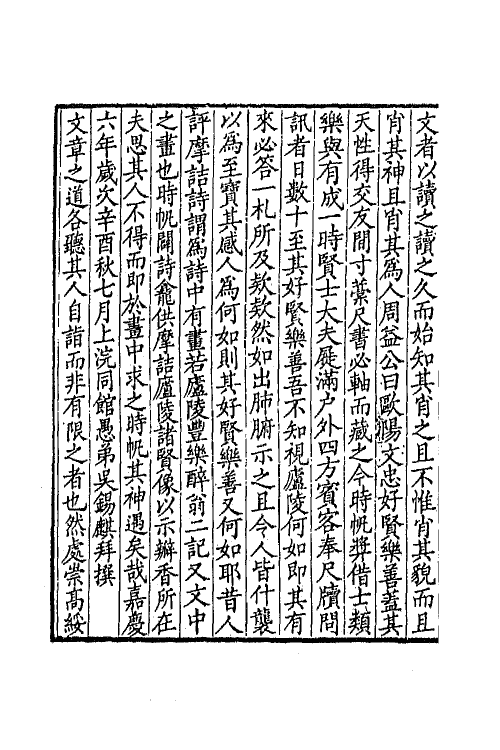 文者以讀之讀之久而始知其肖之且不惟肖其貌而且
肖其神且肖其為人周益公曰歐陽文忠好賢樂善蓋其
天性得交友間寸藁尺書必軸而藏之今時帆奬借士類
樂與有成一時賢士大夫屣滿户外四方賓客奉尺牘問
訊者日數十至其好賢樂善吾不知視廬陵何如即其有
來必答一札所及欵欵然如出肺腑示之且令人皆什襲
以為至寶其感人為何如則其好賢樂善又何如耶昔人
評摩詰詩謂為詩中有畫若廬陵豐樂醉翁二記又文中
之畫也時帆闢詩龕供摩詰廬陵諸賢像以示瓣香所在
夫思其人不得而即於畫中求之時帆其神遇矣哉嘉慶
六年歲次辛酉秋七月上浣同館愚弟吳錫麒拜撰
文章之道各聽其人自詣而非有限之者也然處崇高綏